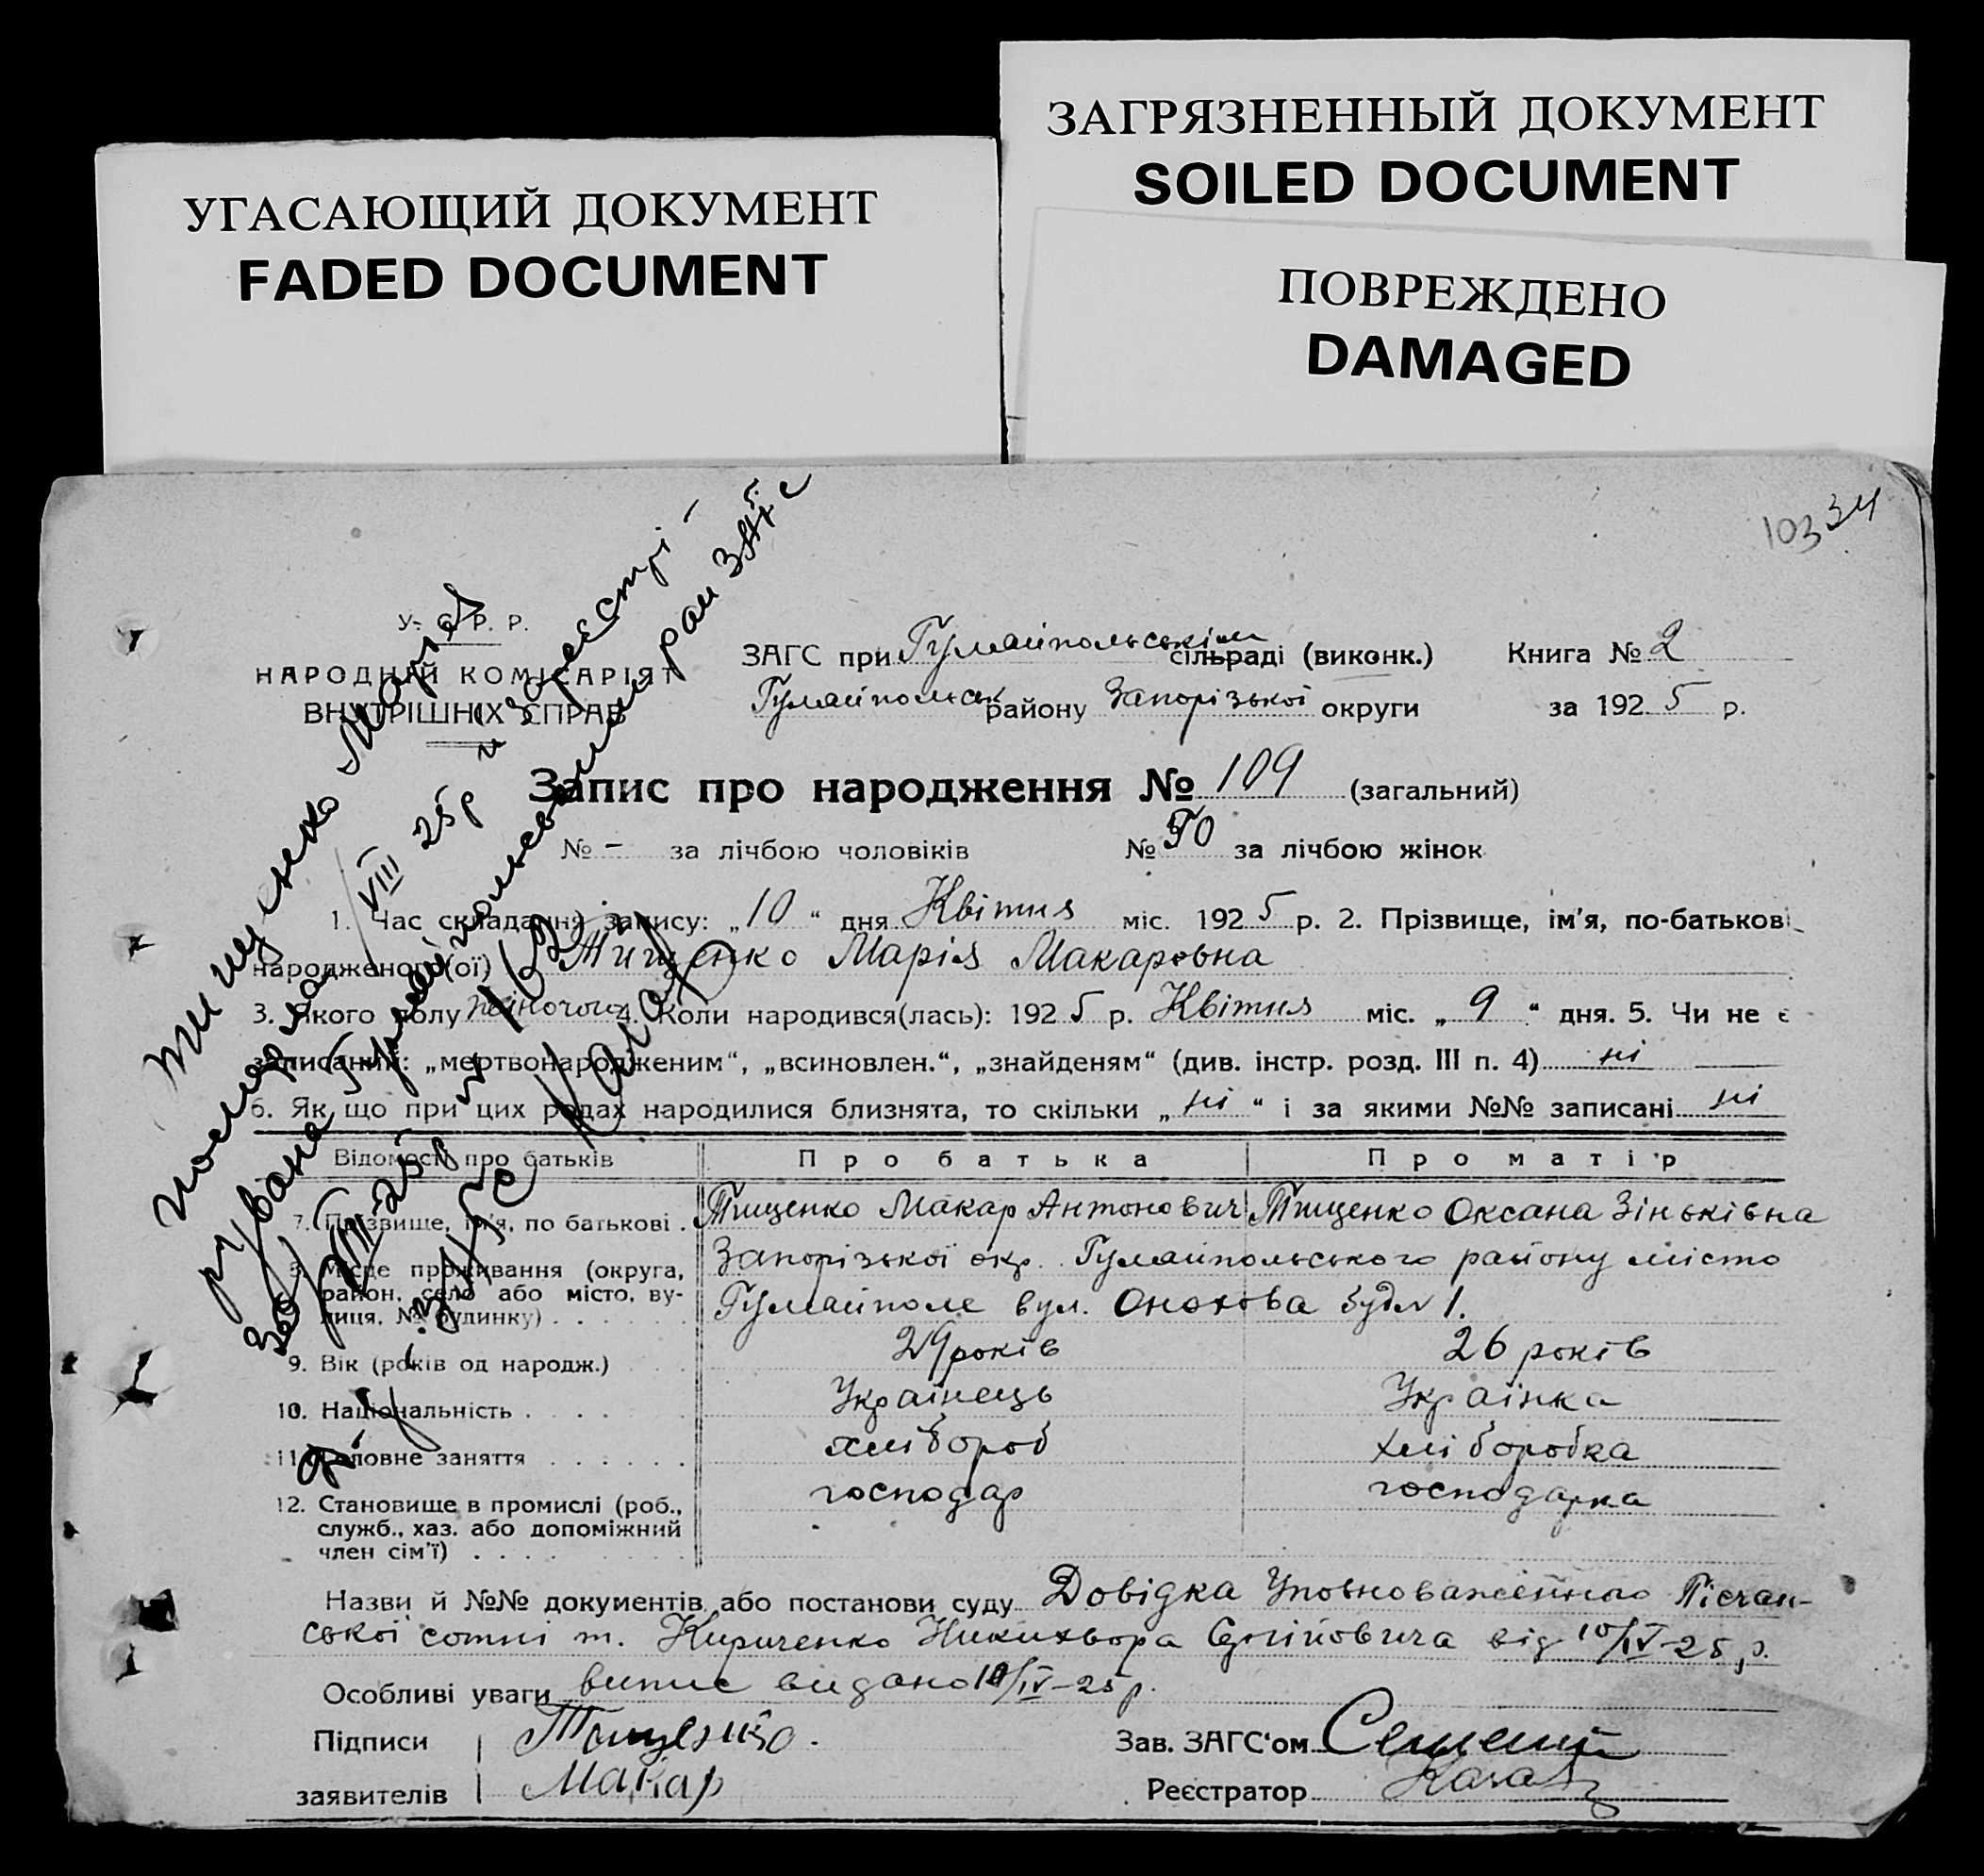 ЗАГРЯЗНЕННЫЙ ДОКУМЕНТ
SOILED DOCUMENT
УГАСАЮЩИЙ ДОКУМЕНТ
FADED DOCUMENT
ПОВРЕЖДЕНО
DAMAGED
103 34
У. С. Р. Р.
НАРОДНІЙ КОМІСАРІЯТ
ВНУТРІШНІХ СПРАВ
ЗАГС при Гуляйпольськім сільраді (виконк.) Книга № 2
Гуляйпольськ району Запорізької округи за 1925 р.
Запис про народження № 109 (загальний)
№ - за лічбою чоловіків № 50 за лічбою жінок
1. Час складання запису: „10“ дня Квітня міс. 1925 р. 2. Прізвище, ім'я, по-батькові
народженого(ої) Тищенко Марія Макаровна
3. Якого полу жіночого 4. Коли народився(лась): 1925 р. Квітня міс. „9“ дня. 5. Чи не є
записаний: „мертвонародженим“, „всиновлен.“, „знайденям“ (див. інстр. розд. III п. 4) ні
6. Як що при цих родах народилися близнята, то скільки „ні“ і за якими №№ записані ні
Відомості про батьків Про батька Про матір
7. Прізвище, ім'я, по батькові. Тищенко Макар Антонович Тищенко Оксана Зіньківна
8. Місце проживання (округа, район, село або місто, вулиця, № будинку) Запорізької окр. Гуляйпольського району місто
Гуляйполе вул. будл 1.
9. Вік (років од народж.) 29 років 26 років
10. Національність Українець Українка
11. Головне заняття хлібороб хліборобка
12. Становище в промислі (роб., господар господарка
служб., хаз. або допоміжний
член сім'ї)
Назви й №№ документів або постанови суду Довідка Уповноваженного Пісчан-
ської сотні т. Кириченко від 10/IV-25 р.
Особливі уваги випис видано 10/IV-25 р.
Підписи Тищенко. Зав. ЗАГС'ом
заявителів Макар Реєстратор
Тищенко Марія
померла VIII 25 р и зареєстрі-
рувана Гуляйпольським рай ЗАГС